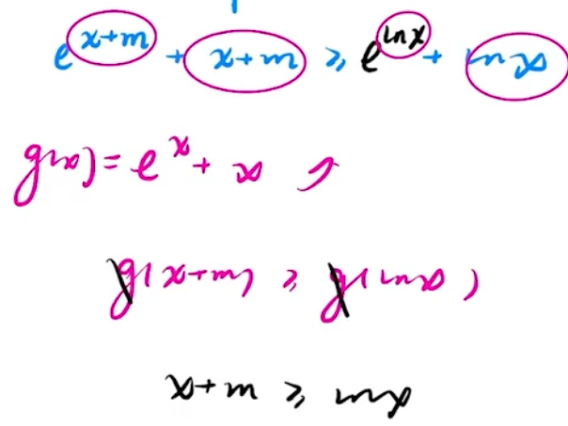 e^{x+m} + x+m ≥ e^{lnx} + lnx
g(x) = e^x + x ↗
g(x+m) ≥ g(lnx)
x+m ≥ lnx